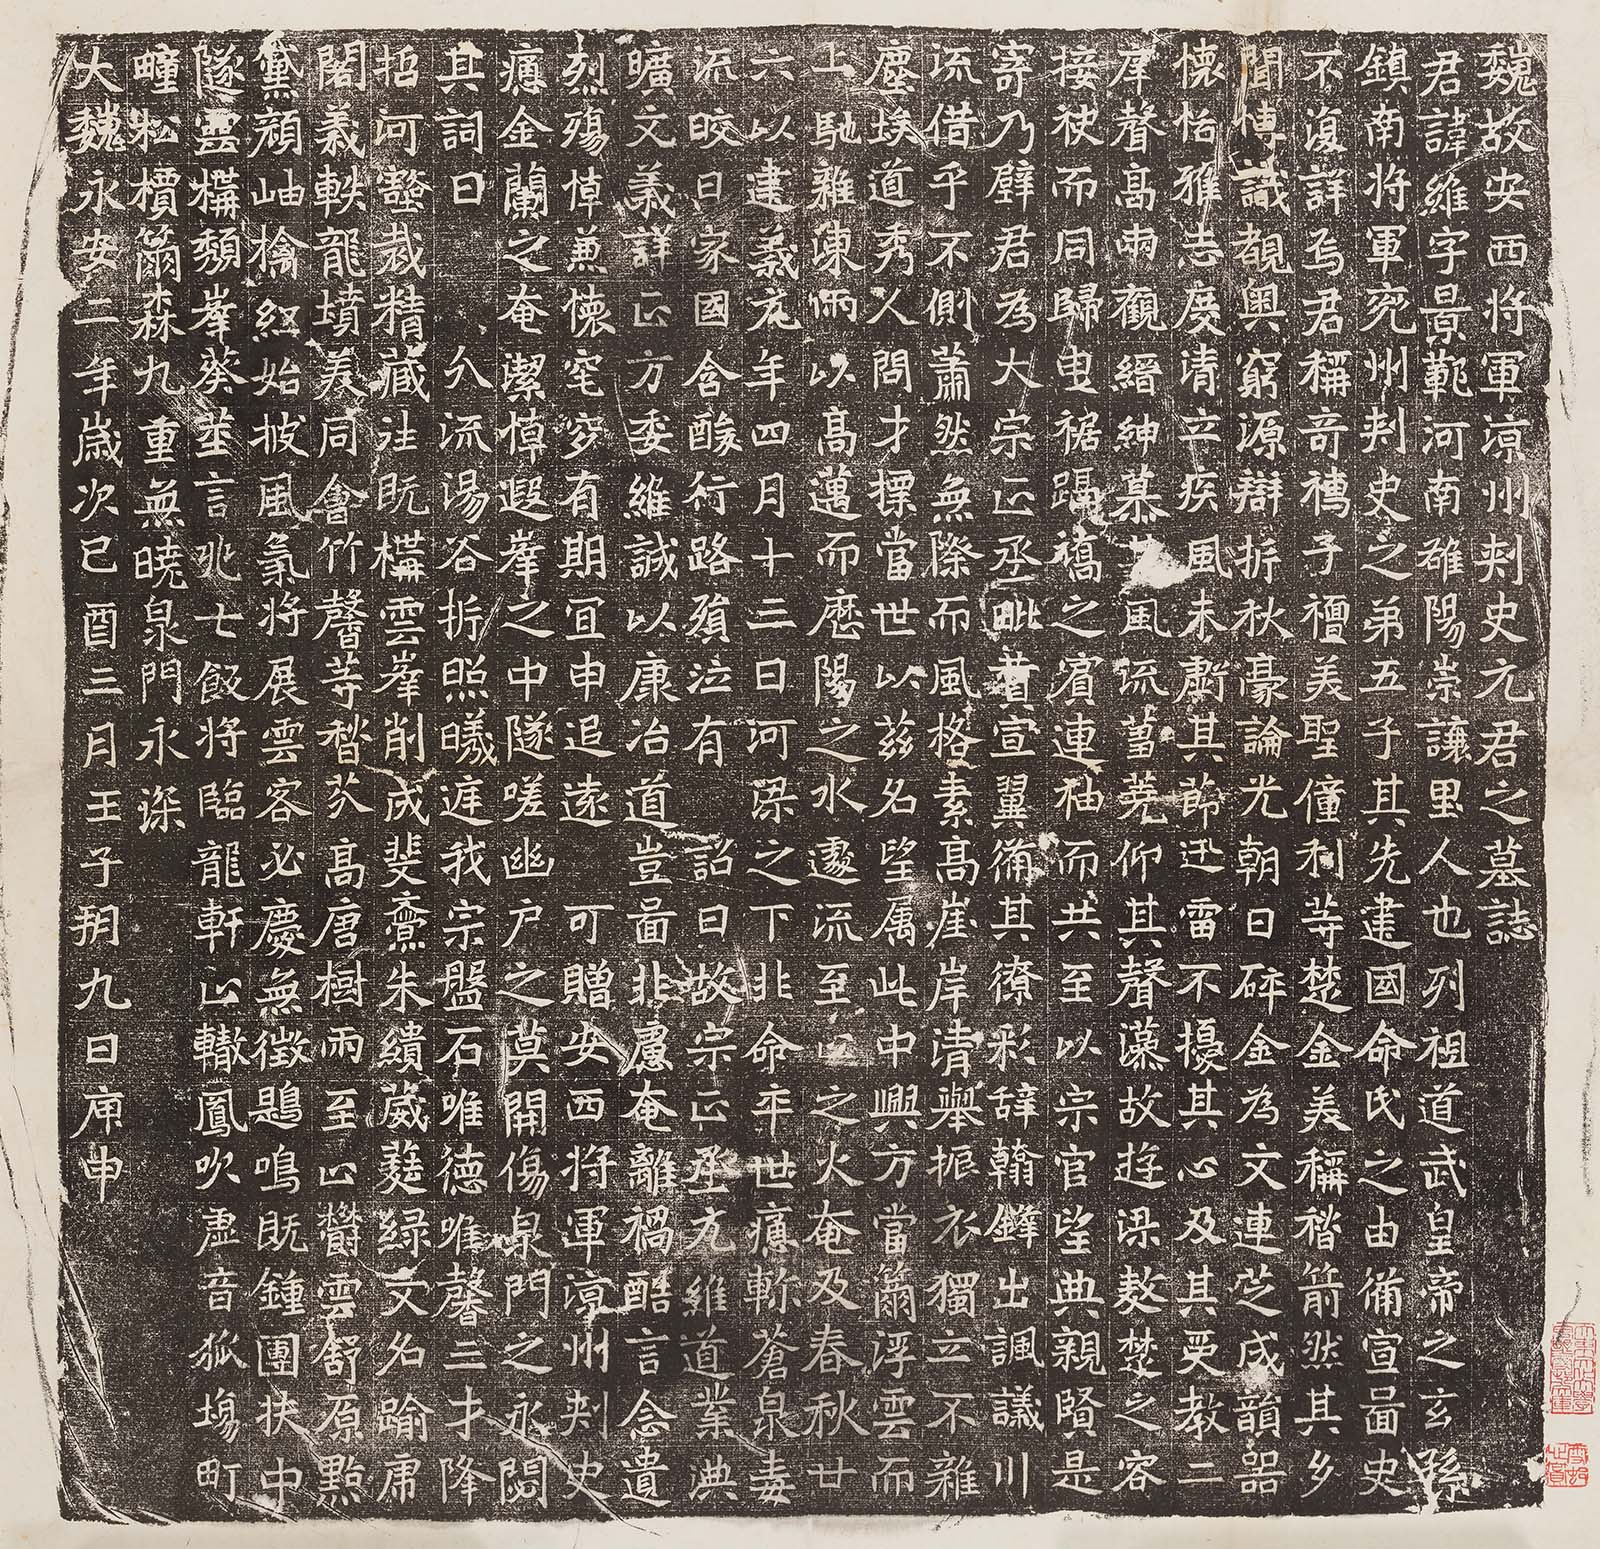 魏故安西將軍涼州刺史元君之墓誌
君諱維字景範河南雒陽崇讓里人也列祖道武皇帝之玄孫
鎮南將軍兖州刺史之弟五子其先建國命氏之由備宣啚史
不復詳焉君稱奇襁子襢美聖僮利等楚金美稱稭箭然其鄉
聞博識覩奧窮源辯折秋豪論光朝日碎金為文連芝成韻器
懷恬雅志度清立疾風未勵其節迅雷不擾其心及其受教二
庠聲高兩觀縉紳慕其風流菖蕘仰其聲藻故遊梁敖楚之容
接祑而同歸曳裾躡蹻之賓連袖而共至以宗官望典親賢是
寄乃辟君為大宗正丞毗賛宣翼備其僚彩辭翰鋒出諷議川
流借乎不側蕭然無際而風格素高崖岸清舉振衣獨立不雜
塵埃道秀人間才摽當世以兹名望属此中興方當簫浮雲而
上馳雜陳𠕅以高蕅而歷陽之水遽流至之火奄及春秋廿
六以建義元年四月十三日河梁之下非命卒世癔斬蒼泉毒
流晈日家國含酸行路殞泣有 詔曰故宗正丞元維道業淟
曠文義詳正方委維誠以康治道豈啚非慮奄離禍酷言念遺
烈殤悼兼懷窀穸有期冝申追遠 可贈安西將軍涼州刺史
癔金蘭之奄潔悼遐峯之中隧嗟幽户之莫開傷泉門之永閟
其詞曰 久流湯谷折照曦庭我宗盤石唯德唯馨三才降
哲河盩裁精藏注既構雲峯削成斐亹朱繢葳蕤緑文名踰庸
閣義軼龍墳美同會竹馨等嵆芥高唐樹雨至山欝雲舒原點
黛顔岫檎紅始披風氣將展雲客必慶無徴鶗鳴既鍾團扶中
隧雲構頽峯葵茔言兆七飯將臨龍軒山轍鳳吹虛音狐塲町
疃松檟簫森九重無曉泉門永深
大魏永安二年歲次己酉三月壬子朔九日庚申